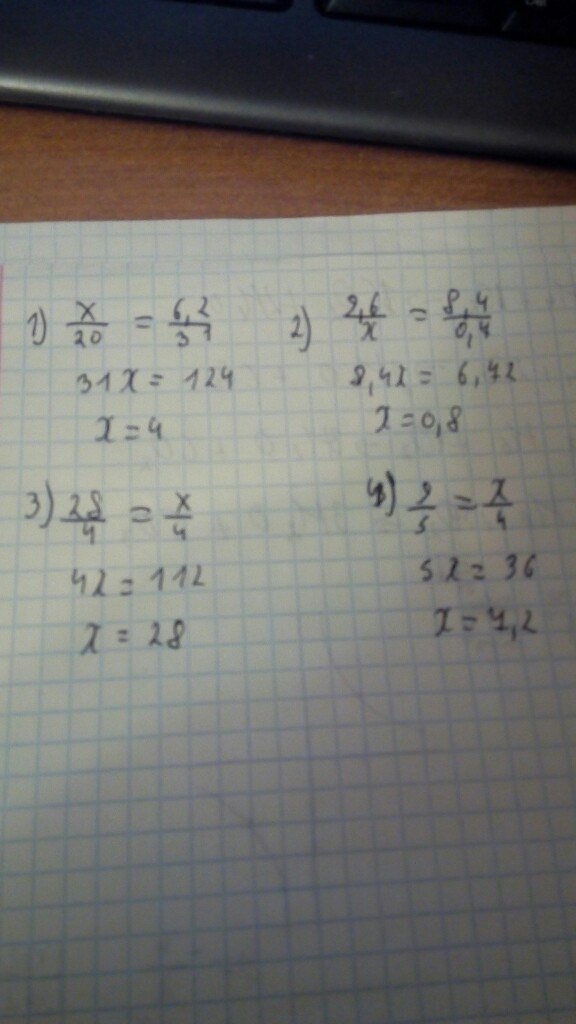 1) x/20 = 6,2/31
31x = 124
x = 4
2) 9,6/x = 8,4/0,7
8,4x = 6,72
x = 0,8
3) 28/4 = x/4
4x = 112
x = 28
4) 9/5 = x/4
5x = 36
x = 7,2